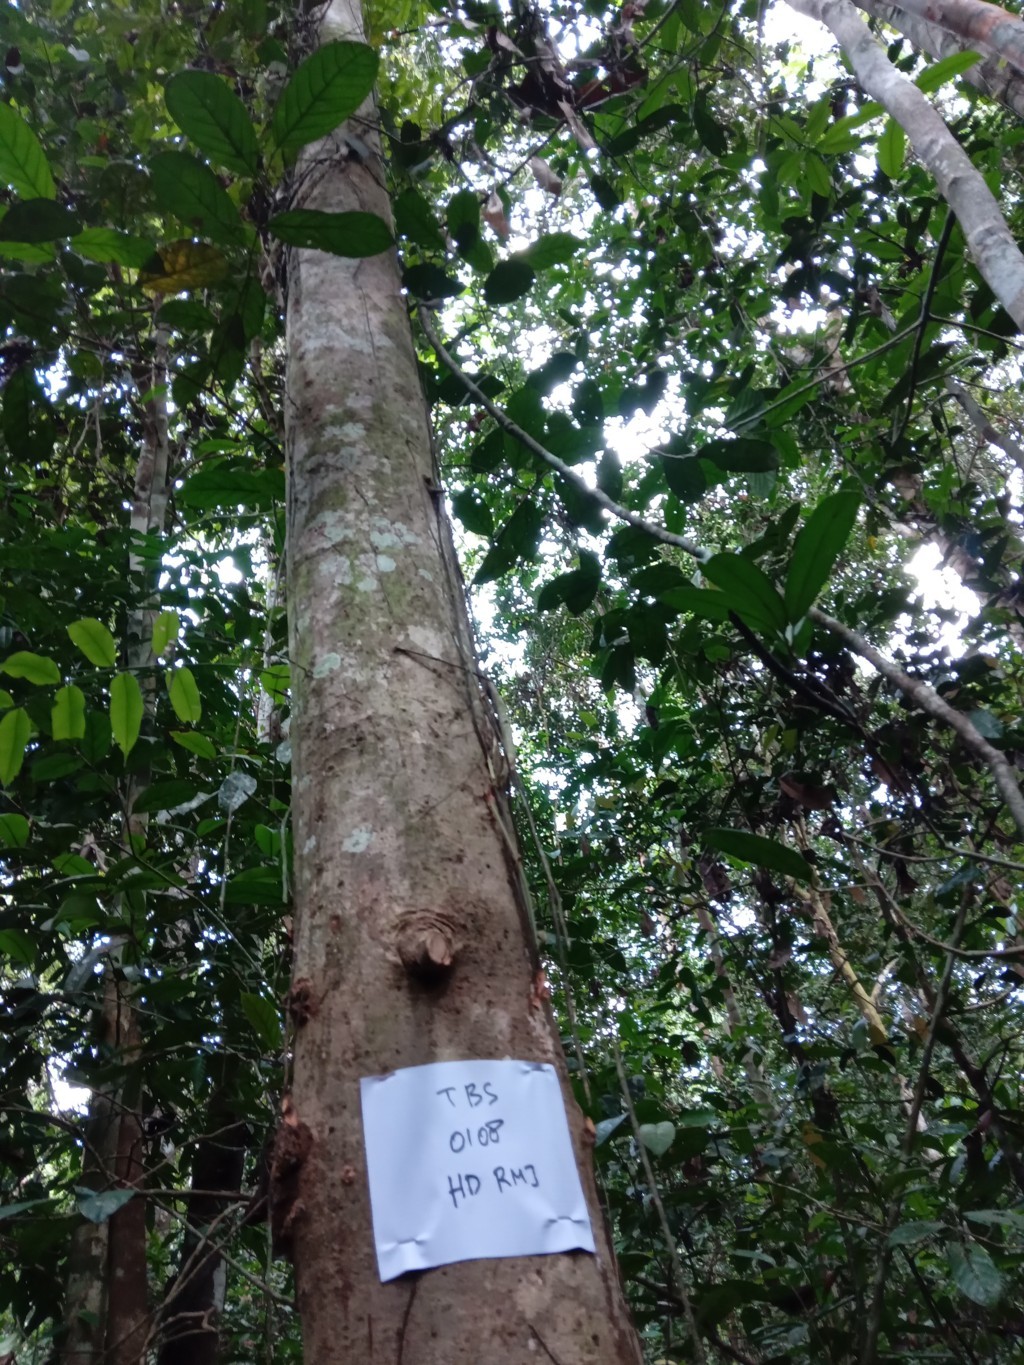 TBS
0108
HD RMJ